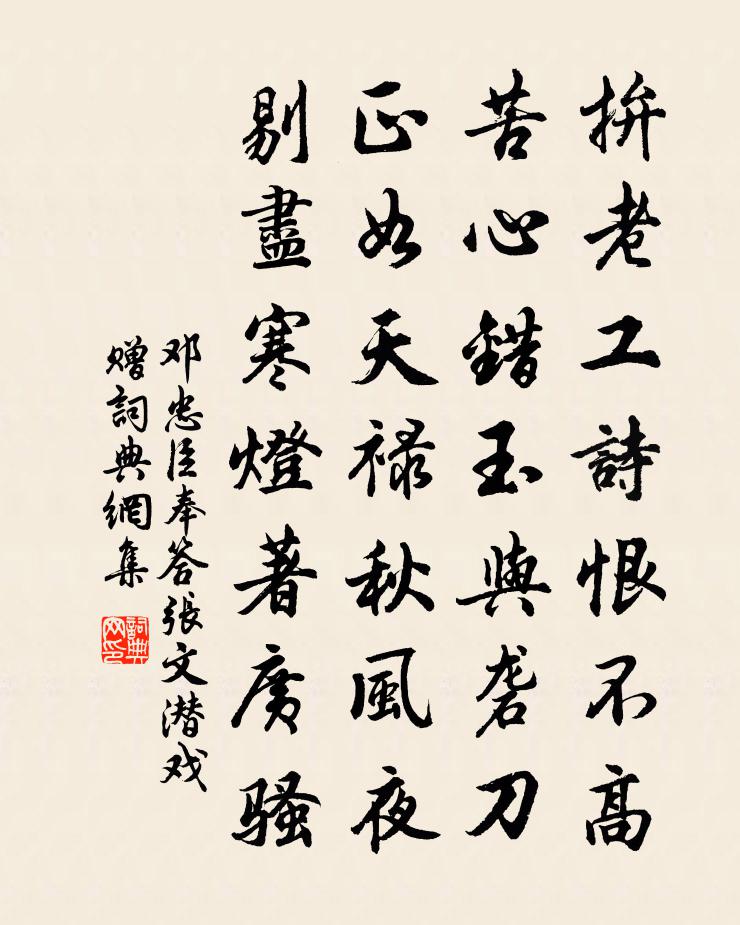 拚老工詩恨不高
苦心錯玉與砻刀
正如天禄秋風夜
剔盡寒燈著廣騷
邓忠臣奉答張文潜戏
赠詞典網集
詞典网印